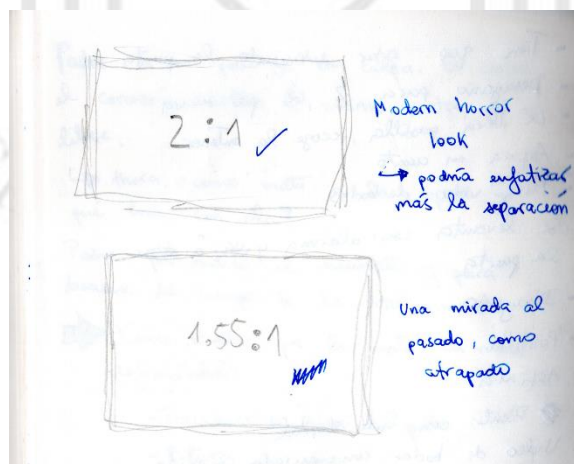 2:1 ✓
Modern horror
look
↳ podría enfatizar
más la separación
1.55:1
Una mirada al
pasado, como
atrapado